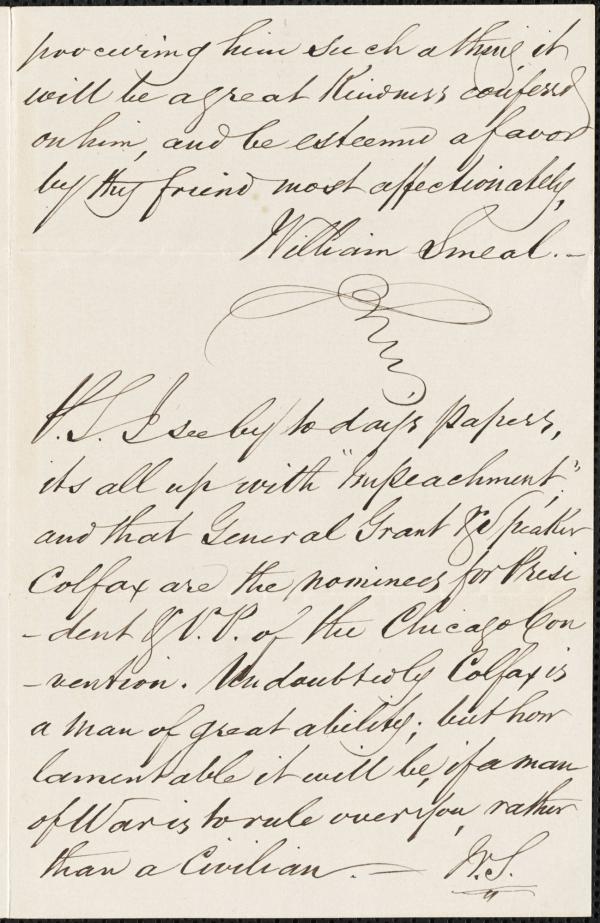 procuring him such a thing it
will be a great Kindness conferrd
on him, and be esteemed a favor
by thy friend most affectionately,
William Smeal. -
P.S. I see by to days papers,
its all up with "Impeachment,"
and that General Grant & Speaker
Colfax are the nominees for Presi
-dent & V.P. of the Chicago Con
-vention. Undoubtedly Colfax is
a man of great ability; but how
lamentable it will be, if a man
of War is to rule over you, rather
than a Civilian. — W.S.